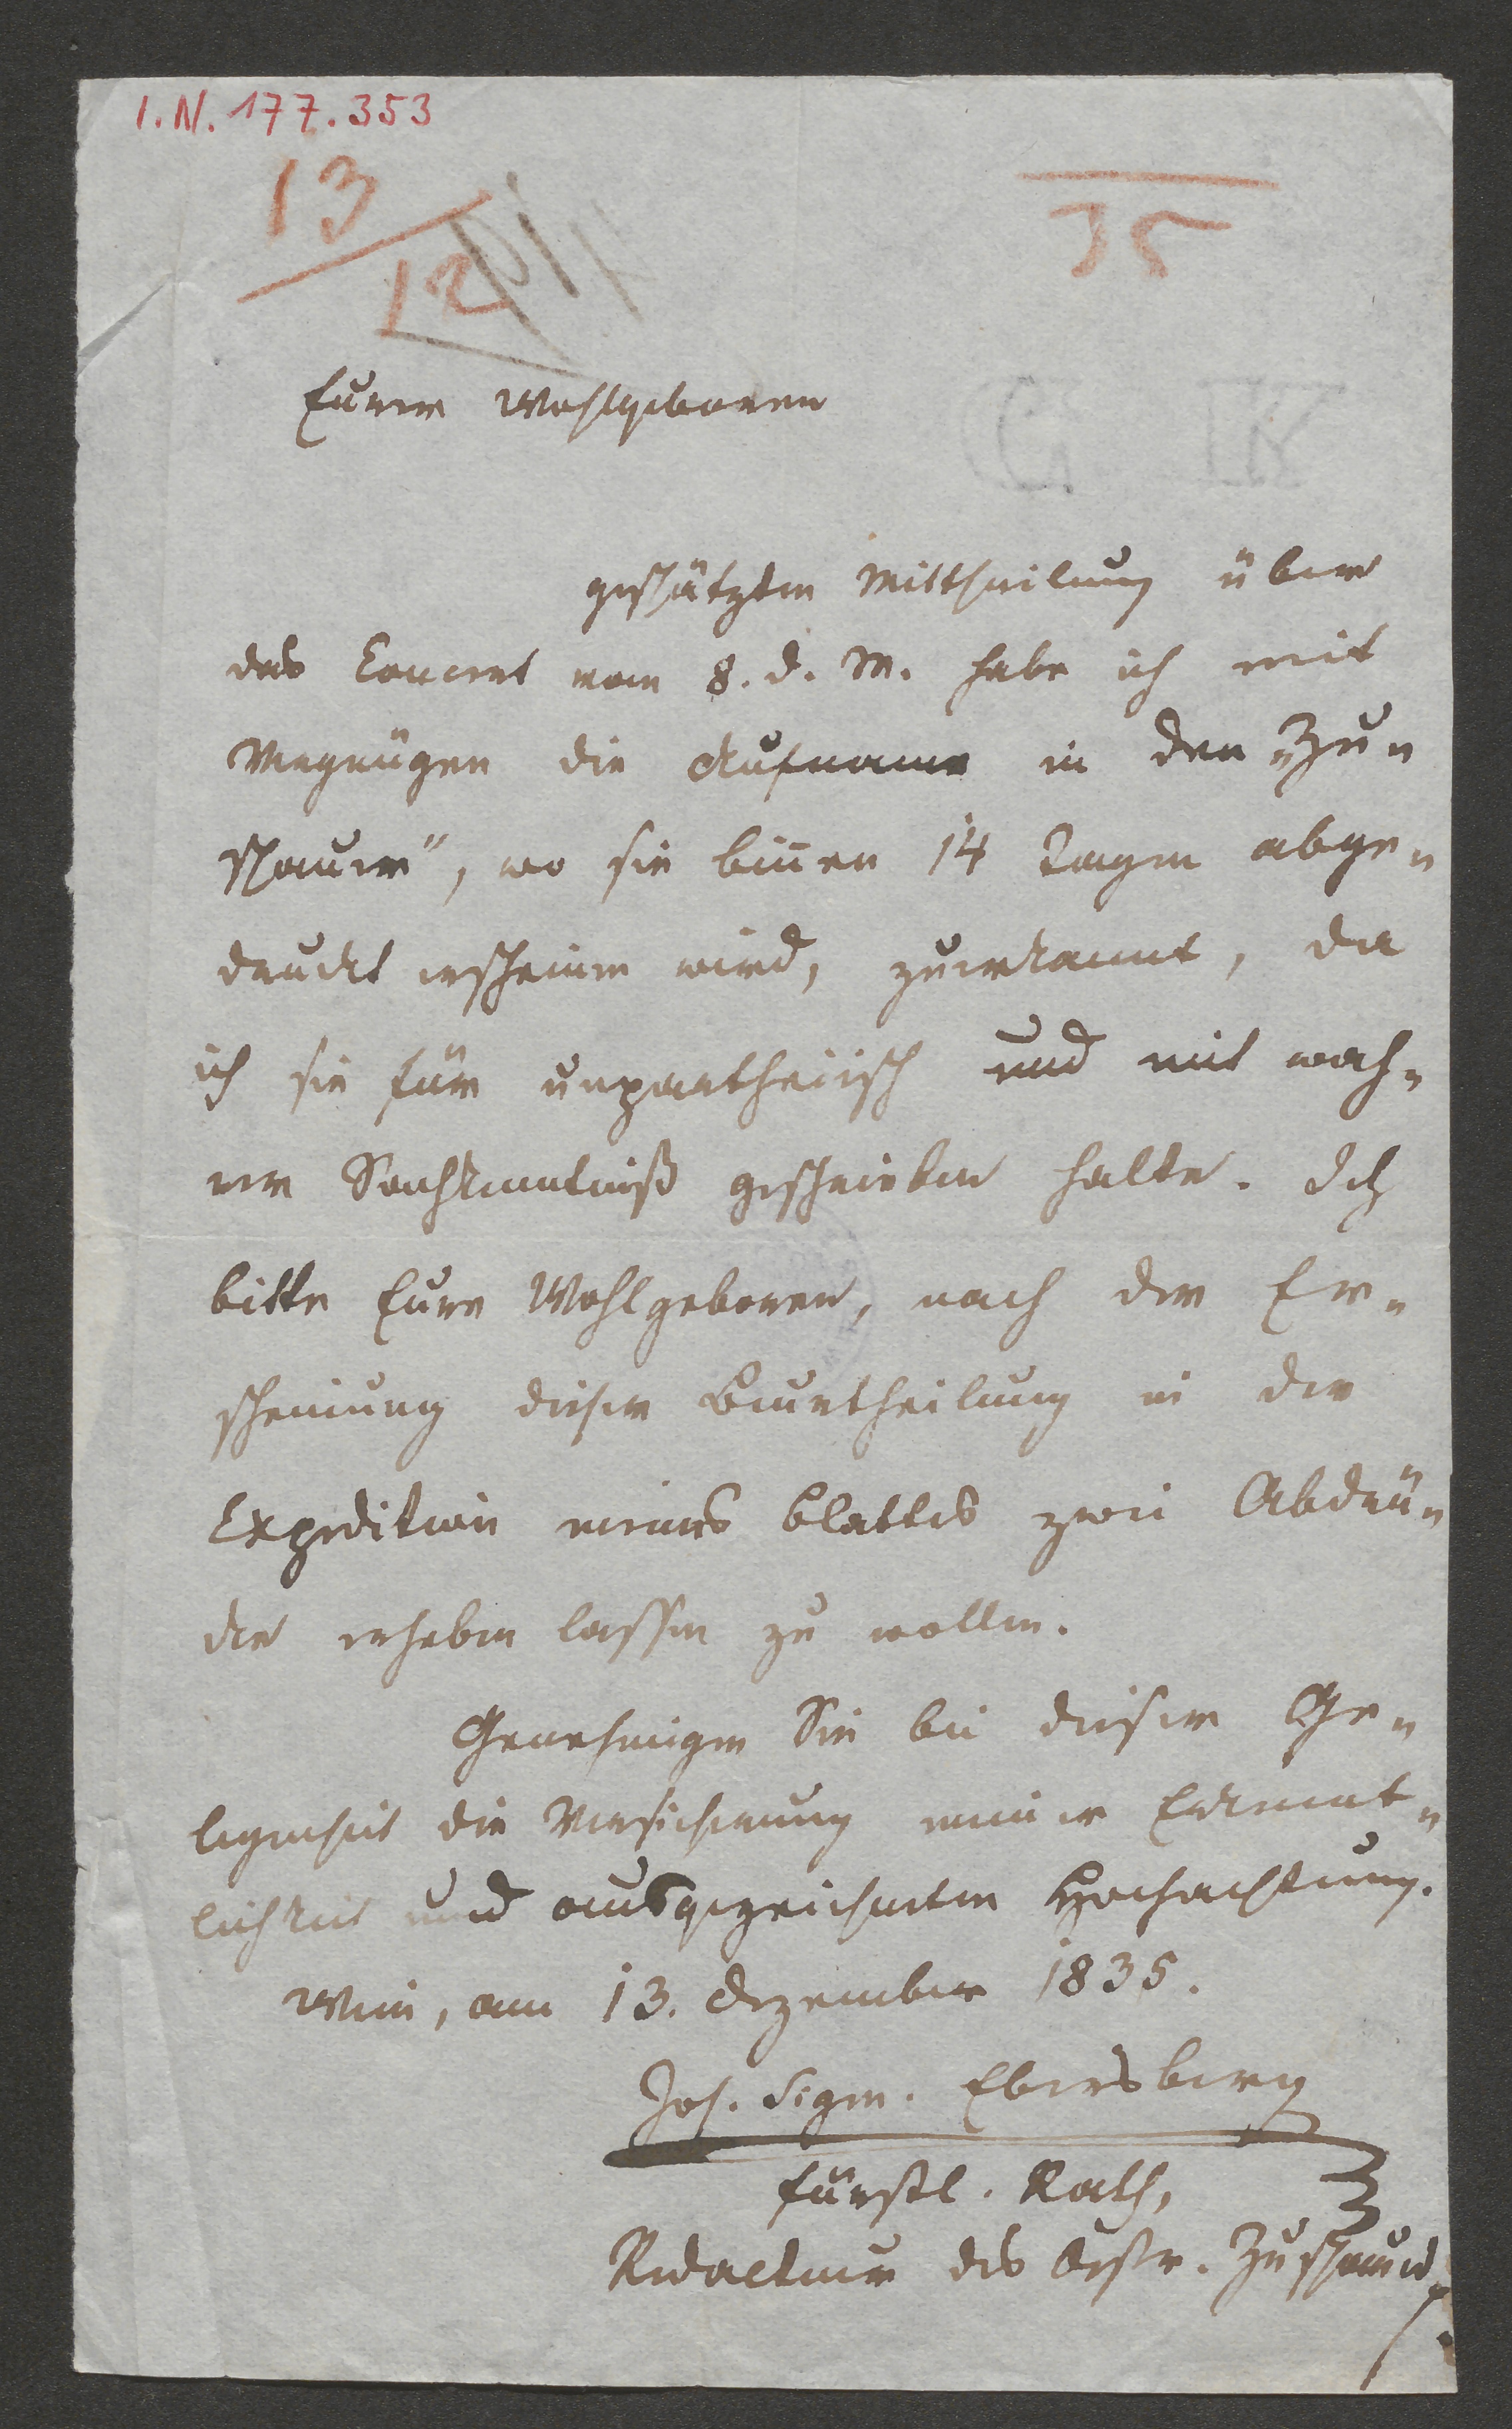 I.N. 177.353
13
12
35
Eurer Wohlgeboren
geschätzten Mittheilung über
das Concert vom 8. d. M. habe ich mit
Vergnügen die Aufname in den „Zu-
schauer", wo sie binnen 14 Tagen abge-
druckt erscheinen wird, zuerkannt, da
ich sie für unpartheiisch und mit wah-
rer Sachkenntniß geschrieben halte. Ich
bitte Eure Wohlgeboren, nach der Er-
scheinung dieser Beurtheilung in der
Expedition meines Blattes zwei Abdrü-
cke erheben lassen zu wollen.
Genehmigen Sie bei dieser Ge-
legenheit die Versicherung meiner Erkennt-
lichkeit und ausgezeichneten Hochachtung.
Wien, am 13. Dezember 1835.
Jos. Sigm. Ebersberg
fürstl. Rath,
Redacteur des Oestr. Zuschauers